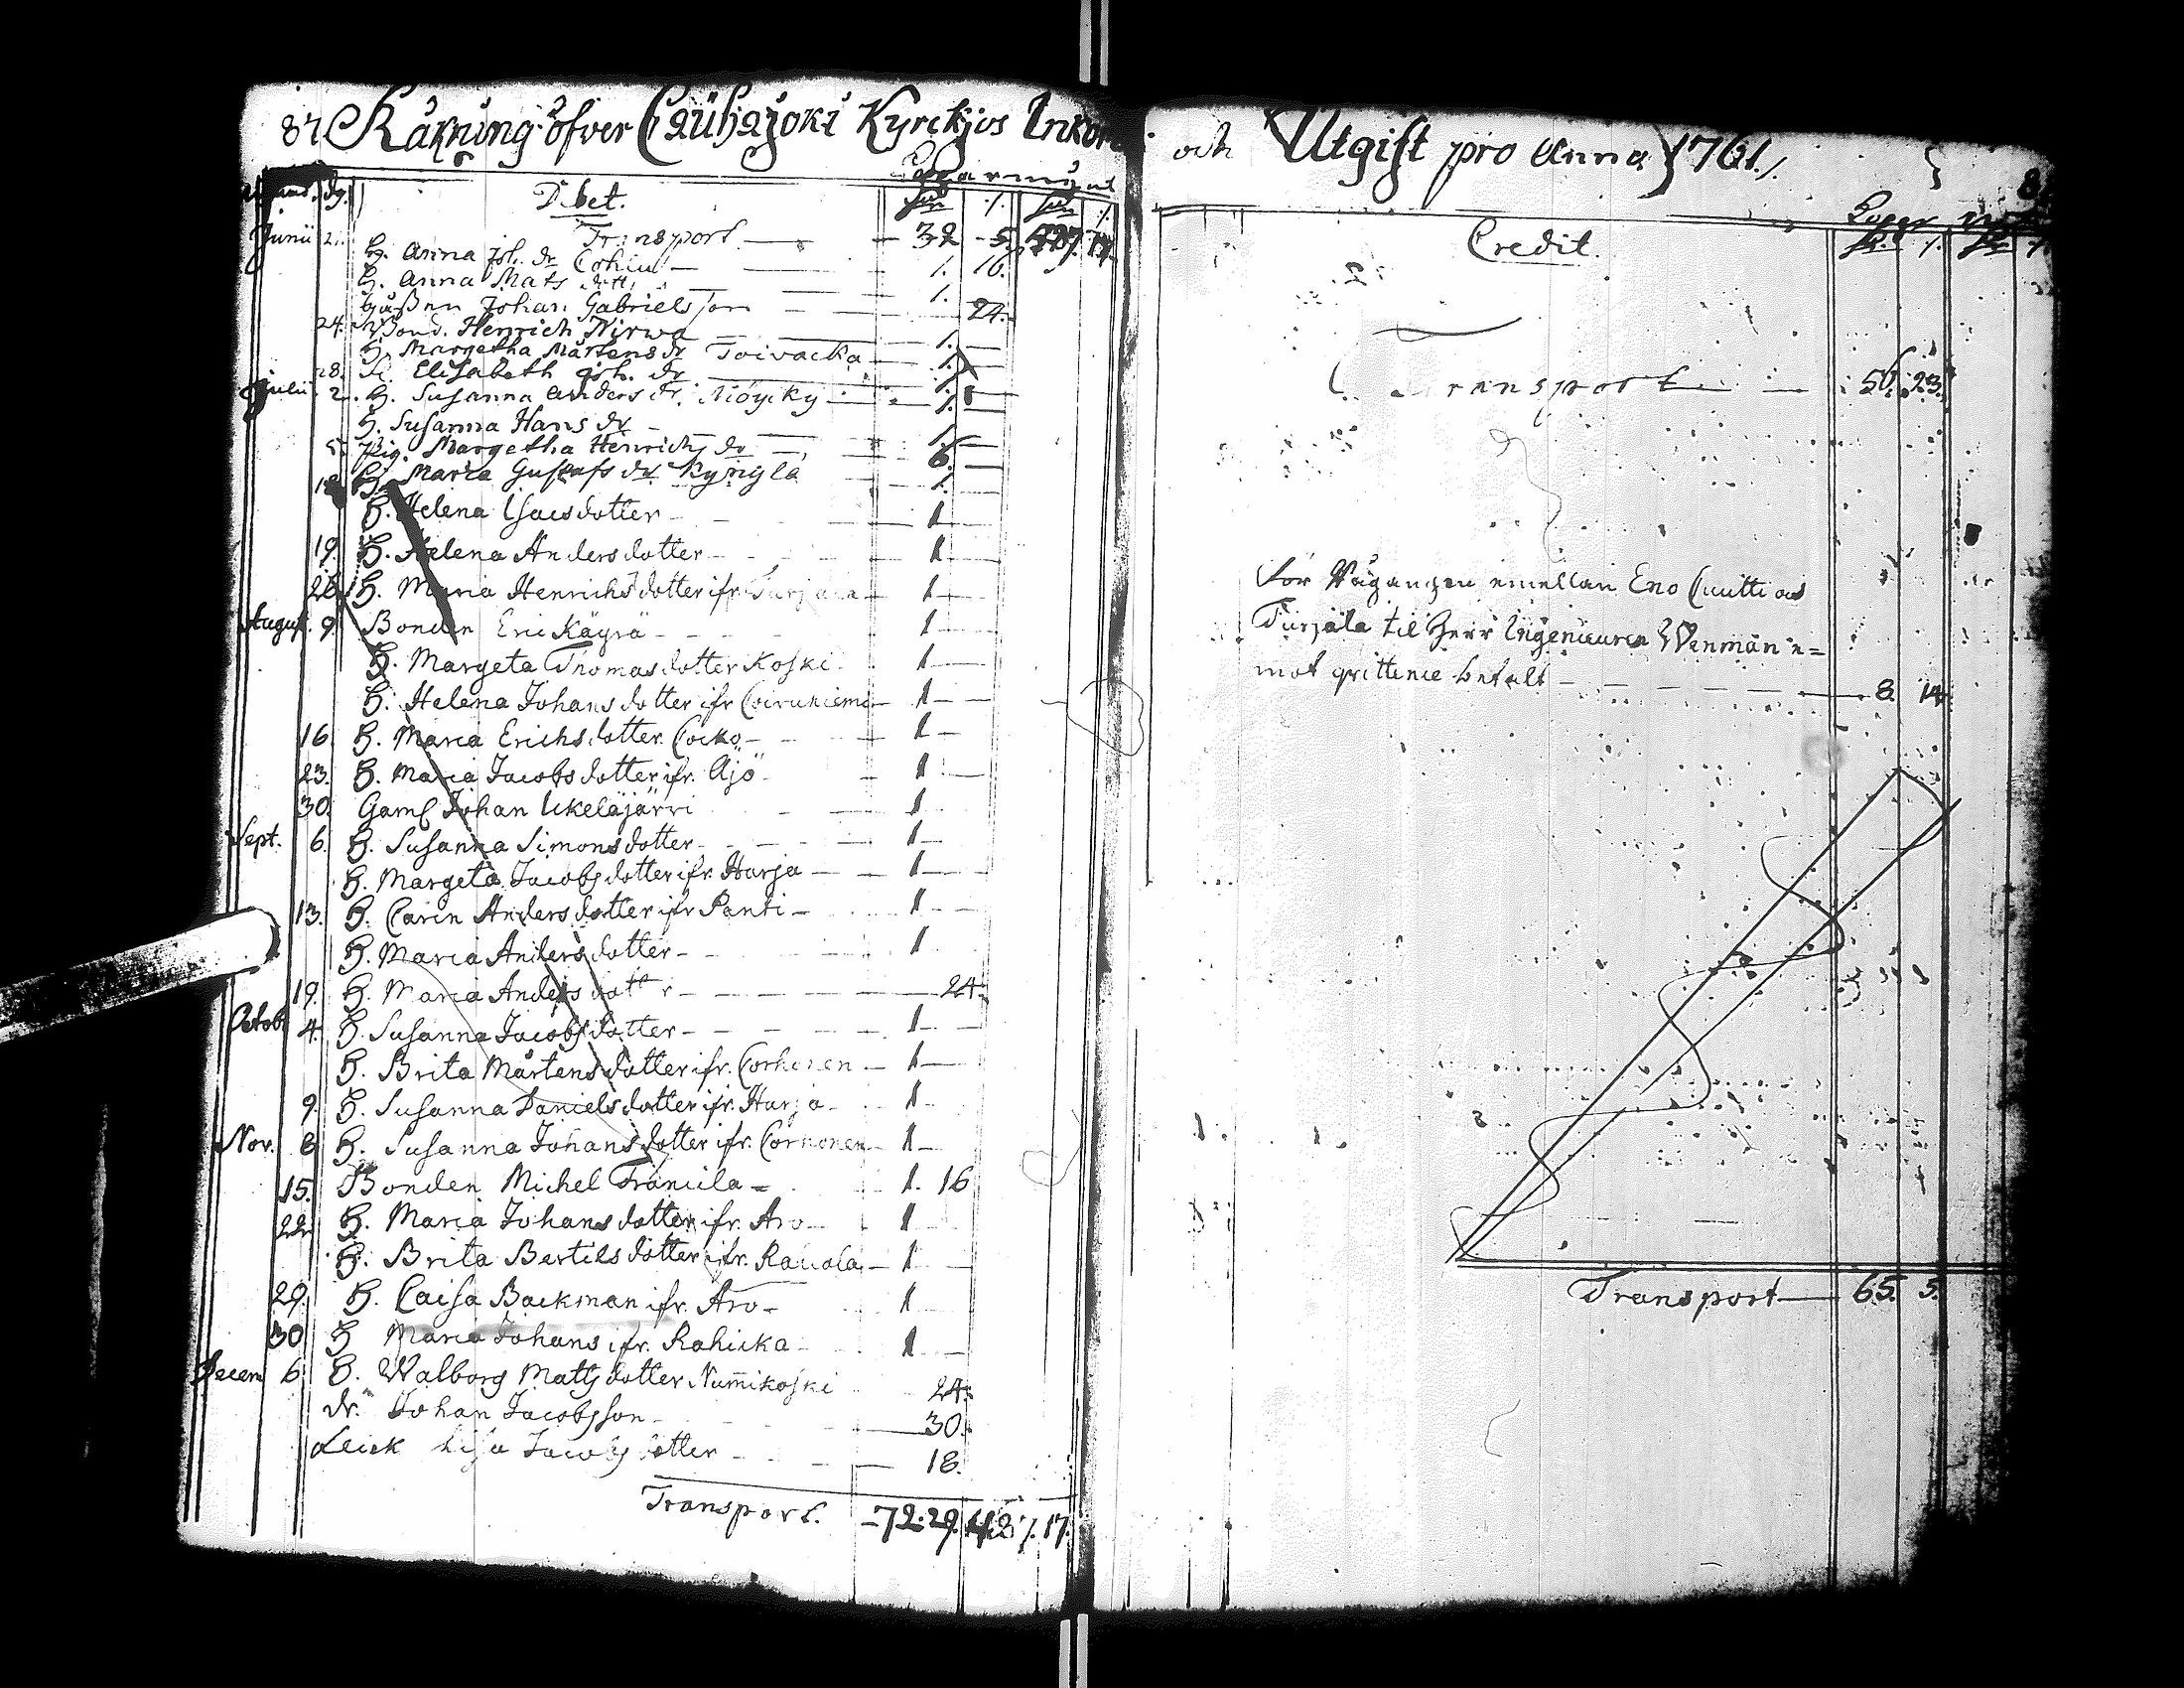 87. Räkning öfver Cauhajoki Kyrckjos Inkom
Debet.
Transport — 32 5
Junii 2. H. Anna Joh. dr — 1. 16.
H. Anna Mats dott. — 1.
Johan Gabrielsson — 24.
24. Bond. Henrich Nirwa — 1.
H. Margetha Mårtens dr Toivacka — 1.
28. H. Elisabeth Joh. dr — 1.
Julii 2. H. Susanna Anders dr. — 1.
H. Susanna Hans dr — 1.
5. Pig. Margetha Henrichs dr — 6.
H. Maria Gustafs dr Kyngla — 1.
H. Helena Isacsdotter — 1
19. H. Helena Andersdotter — 1
26. H. Maria Henrichsdotter ifr. Turjala — 1
August. 9. Bonden Eric Käyrä — 1
H. Margeta Thomasdotter Koski — 1
H. Helena Johansdotter ifr Coiruniemi — 1
16. H. Maria Erichsdotter Cocko — 1
23. H. Maria Jacobsdotter ifr. Äjö — 1
30. Gaml Johan Ikeläjärvi — 1
Sept. 6. H. Susanna Simonsdotter — 1
H. Margeta Jacobsdotter ifr. Harja — 1
13. H. Carin Andersdotter ifr Panti — 1
H. Maria Andersdotter — 1
19. H. Maria Andersdotter — 24.
Octob. 4. H. Susanna Jacobsdotter — 1
H. Brita Mårtensdotter ifr. Corhonen — 1
9. H. Susanna Danielsdotter ifr. Harja — 1
Nov. 8 H. Susanna Johansdotter ifr. Corhonen — 1
15. Bonden Michel Franula — 1. 16
22. H. Maria Johansdotter ifr. Aro — 1
H. Brita Bertilsdotter ifr. Rauala — 1
29. H. Caisa Backman ifr. Aro — 1
30 H Maria Johans ifr. Rahicka — 1
Decem 6. H. Walborg Matsdotter Numikoski 24.
dr. Johan Jacobsson — 30.
Jacobsdotter — 18.
Transport. 72. 29. 427. 17.
och Utgift pro Anno 1761.
Credit.
Transport — 56. 23.
För Wägangen emellan Eno Cuitti och
Turjala til Herr Ingenieuren Wenman e=
mot qvittence betalt — 8. 14
Transport — 65. 5.